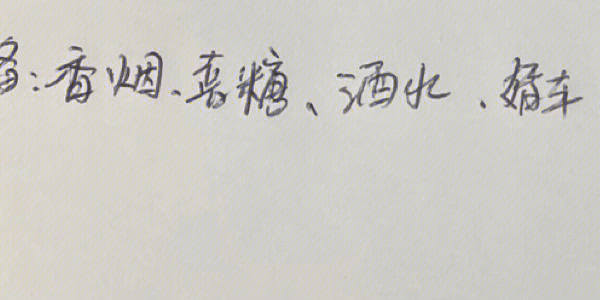 备:香烟、喜糖、酒水、婚车